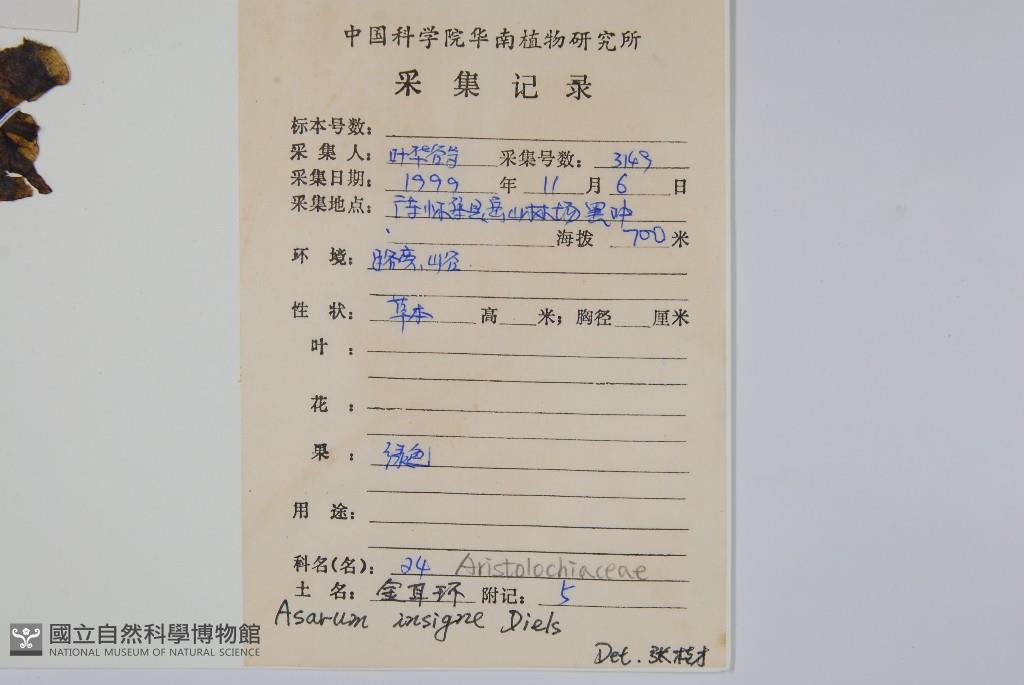 中国科学院华南植物研究所
采集记录
标本号数:
采集人: 叶华谷 采集号数: 3149
采集日期: 1999 年 11 月 6 日
采集地点: 广东怀集县岳山林场黑冲
海拨 700 米
环境: 路旁,山谷
性状: 草本 高 米; 胸径 厘米
叶:
花:
果: 绿色
用途:
科名(名): 24 Aristolochiaceae
土名: 金耳环 附记: 5
Asarum insigne Diels
Det. 张
國立自然科學博物館
NATIONAL MUSEUM OF NATURAL SCIENCE